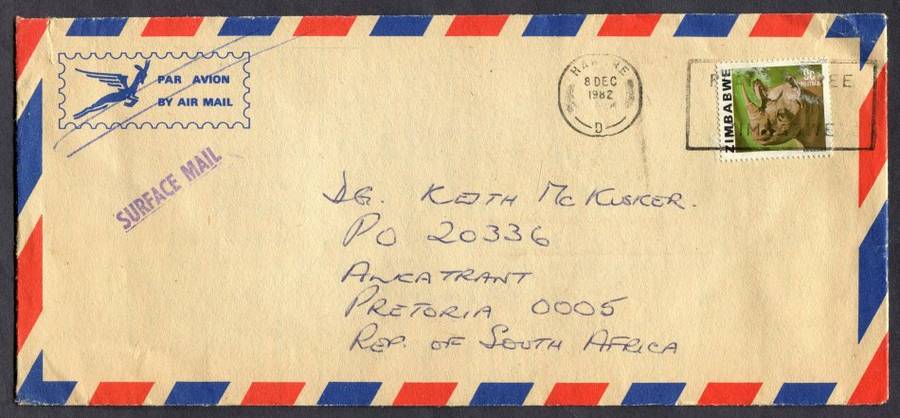 PAR AVION
BY AIR MAIL
HARARE
8 DEC
1982
D
ZIMBABWE
9c
SURFACE MAIL
DG. KEITH MCKUSKER.
PO 20336
ALKATRANT
PRETORIA 0005
REP. OF SOUTH AFRICA